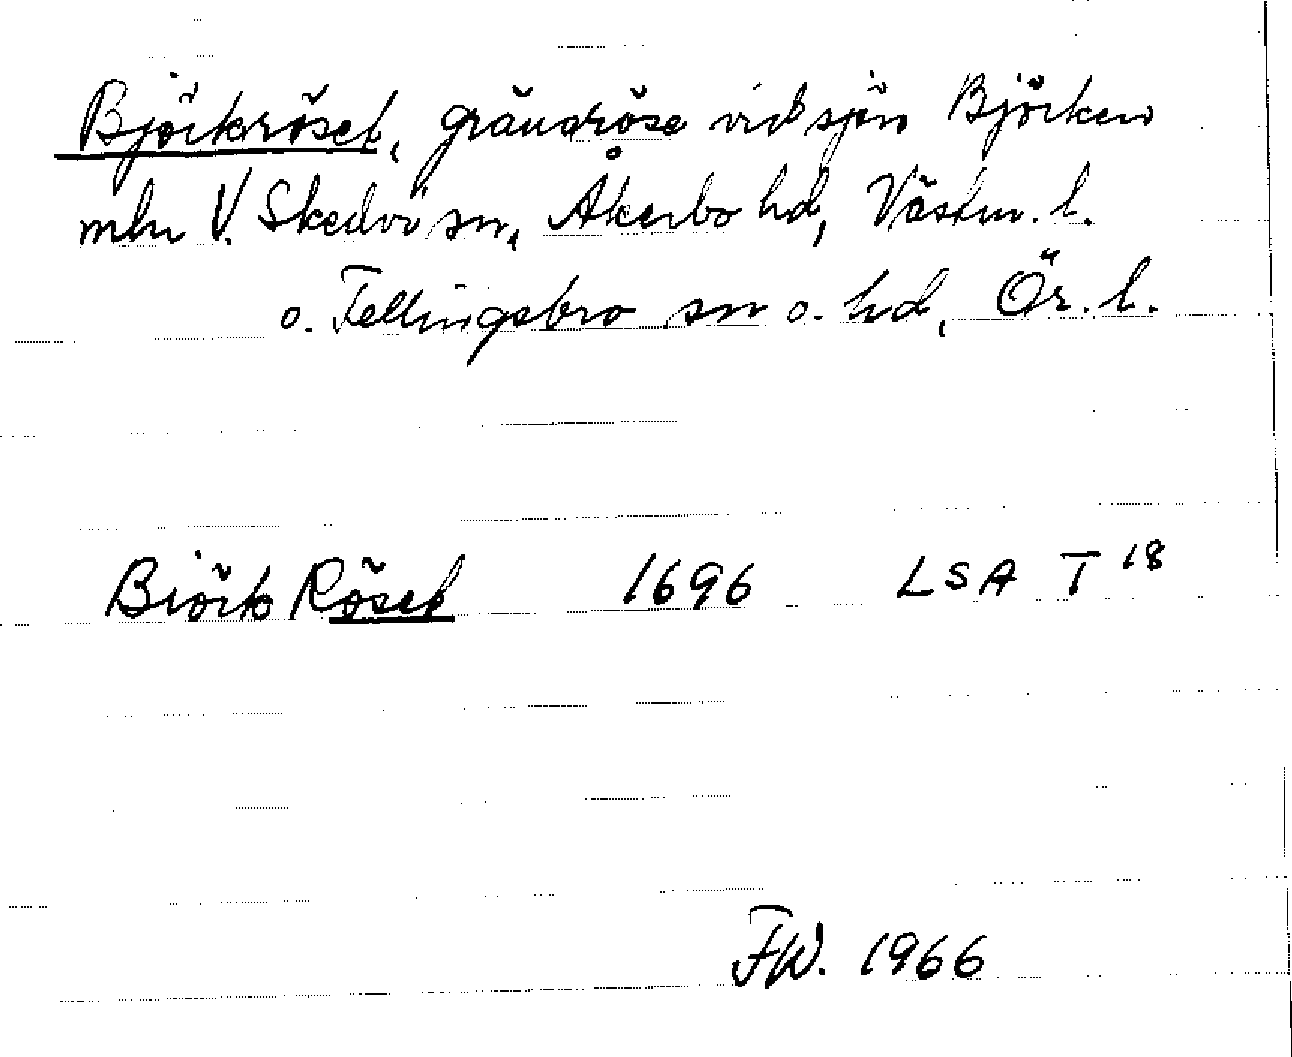 Björkröset, gränsröse vid sjön Björken
mln V. Skedvi sn, Åkerbo hd, Västm. l.
o. Fellingsbro sn o. hd, Ör. l.
Biörk Röset 1696 LSA T 18
FW. 1966